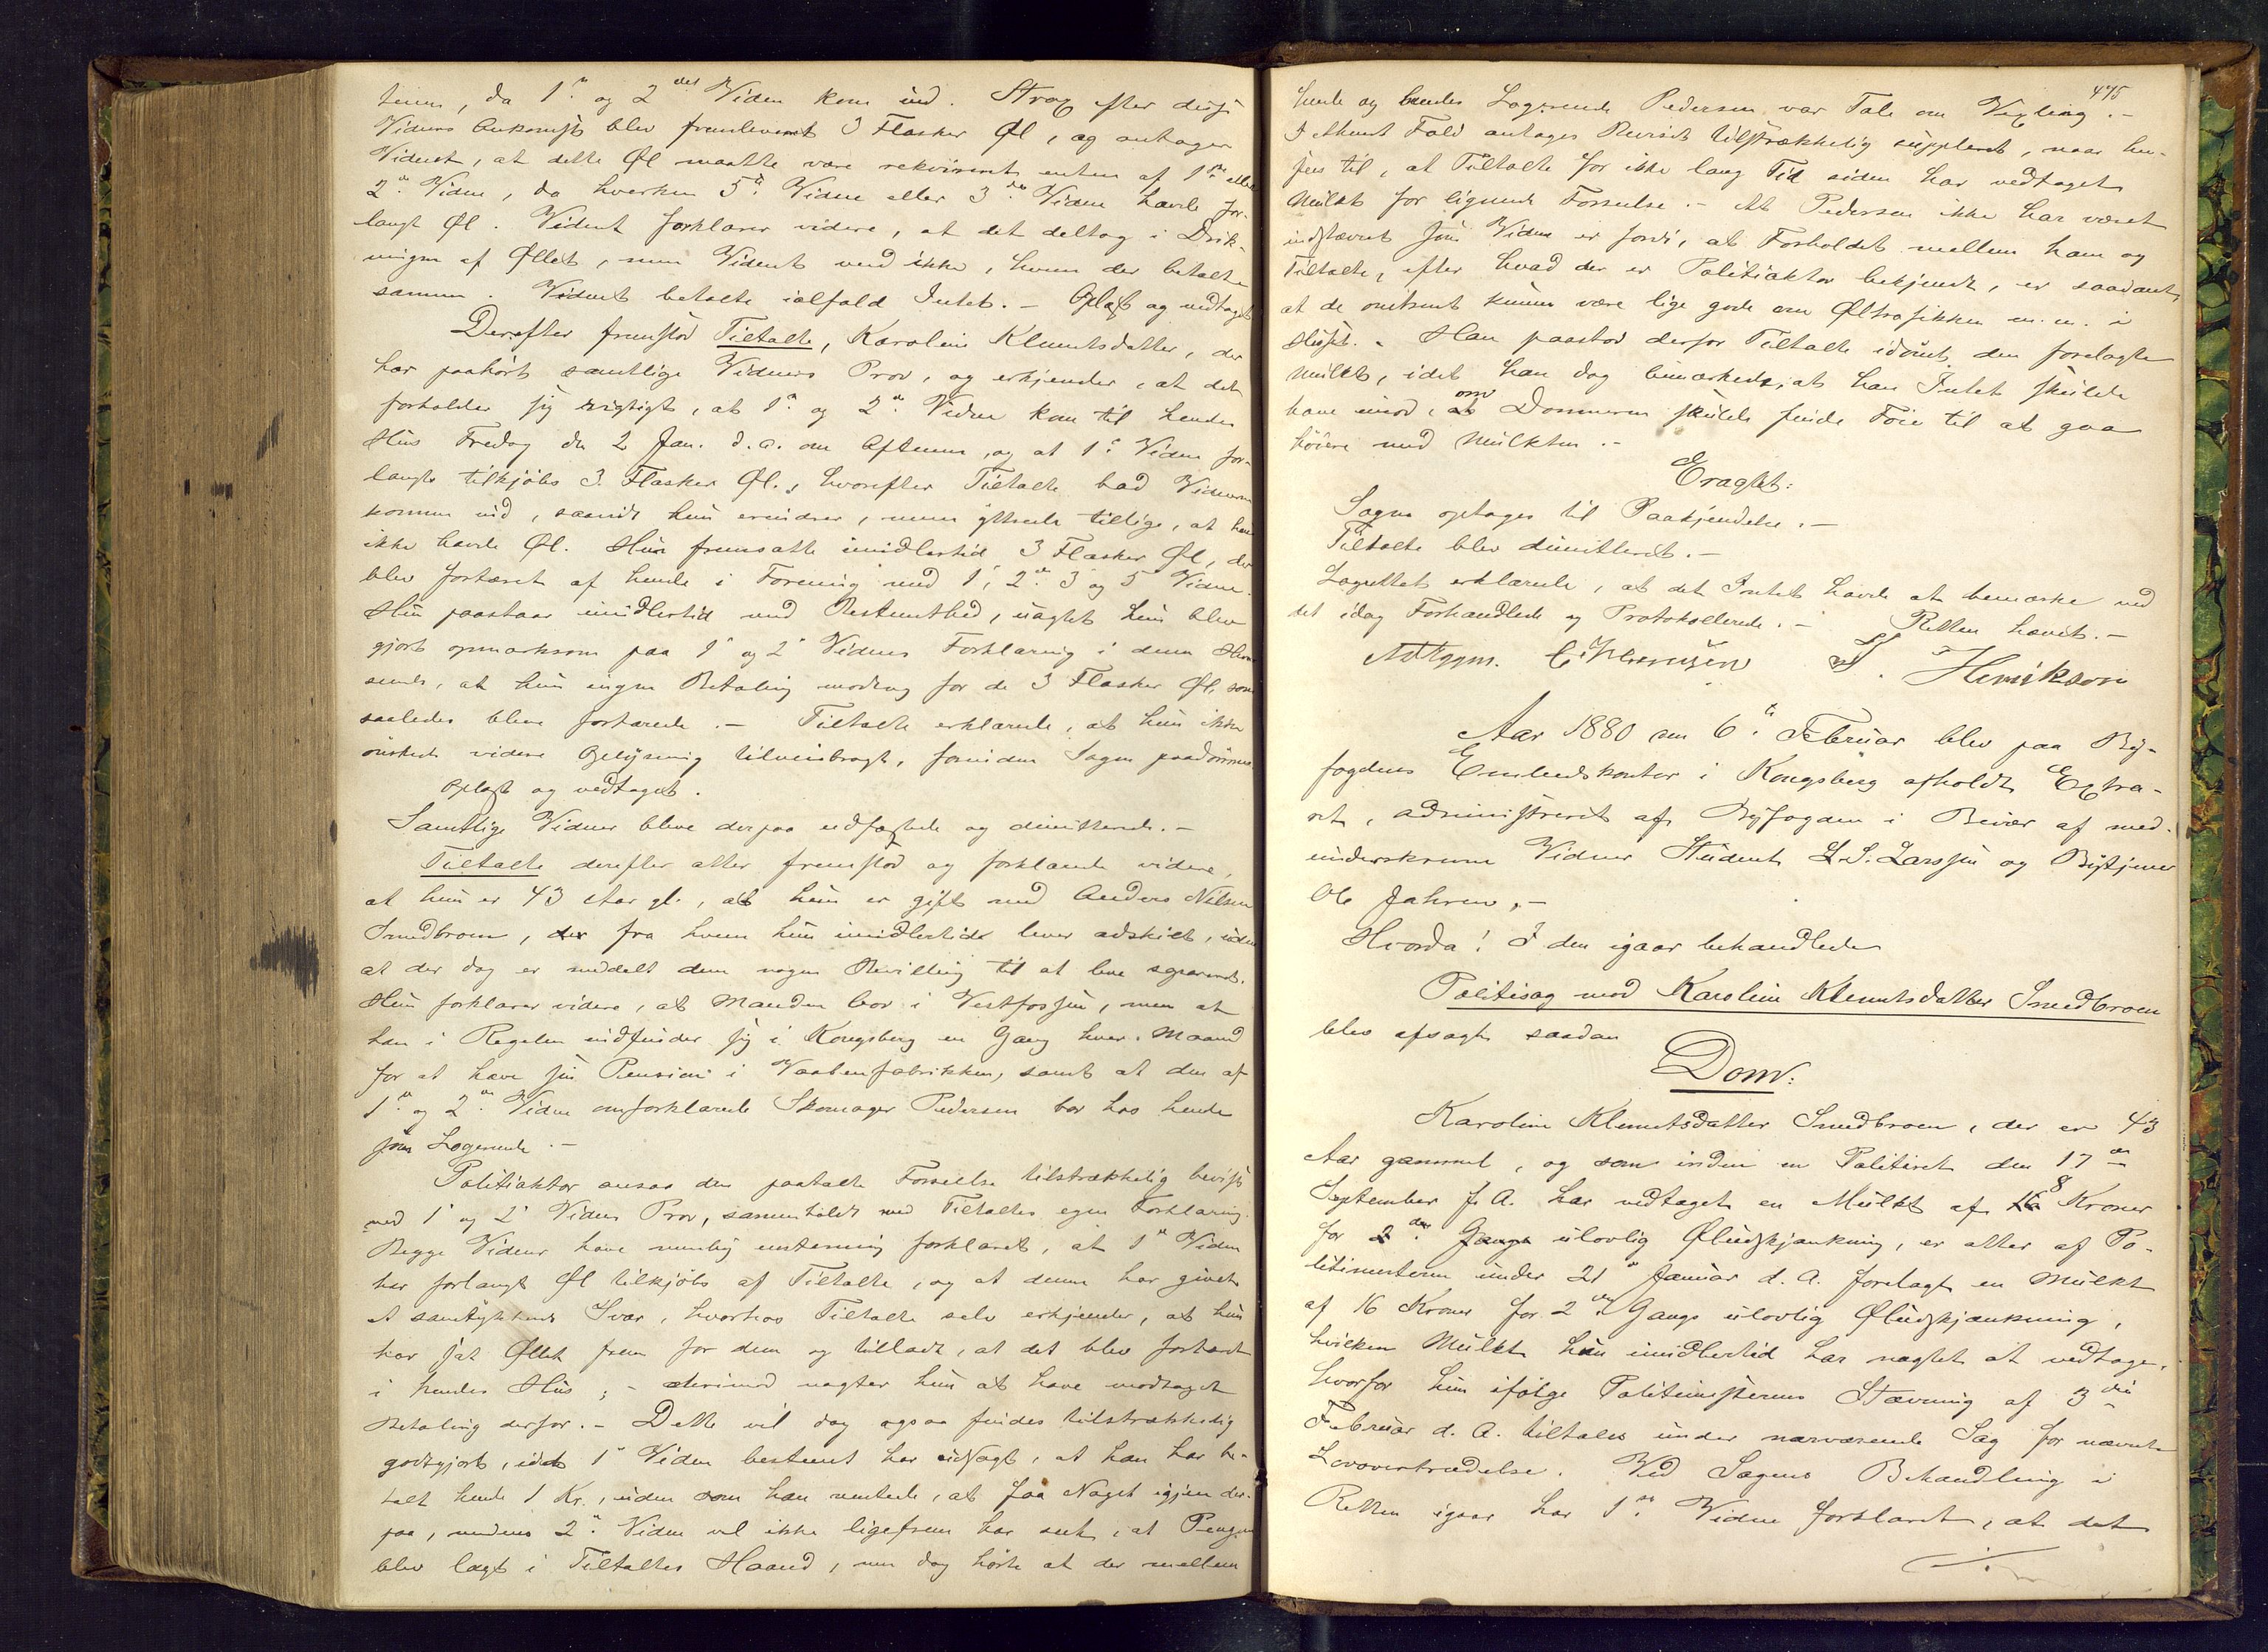 tenen, da 1ste og 2det Vidne kom ind. Strax efter disse
Vidners Ankomst blev fremleveret 3 Flasker Øl, og antager
Vidnet, at dette Øl maatte være rekvireret enten af 1ste eller
2det Vidne, da hverken 5te Vidne eller 3die Vidne havde for-
langt Øl. Vidnet forklarer videre, at det deltog i Drik-
ningen af Øllet, men Vidnet veed ikke, hvem der betalte
samme. Vidnet betalte ialfald Intet. – Oplæst og vedtaget
Derefter fremstod Tiltalte, Karoline Klemetsdatter, der
har paahørt samtlige Vidners Prov, og erkjender, at det
forholder sig rigtigt, at 1ste og 2det Vidne kom til hendes
Hus Fredag den 2 Jan. d. A. om Aftenen, og at 1ste Vidne for-
langte tilkjøbs 3 Flasker Øl, hvorefter Tiltalte bad Vidnerne
komme ind, saavidt hun erindrer, men yttrede tillige, at hun
ikke havde Øl. Hun fremsatte imidlertid 3 Flasker Øl, der
blev fortæret af hende i Forening med 1, 2det 3 og 5 Vidne.
Hun paastaar imidlertid med Bestemthed, uagtet hun blev
gjort opmærksom paa 1ste og 2det Vidnes Forklaring i denne Hen-
seende, at hun ingen Betaling modtog for de 3 Flasker Øl, som
saaledes bleve fortærede. – Tiltalte erklærede, at hun ikke
ønskede videre Oplysning tilveiebragt, forinden Sagen paadømmes.
Oplæst og vedtaget.
Samtlige Vidner bleve derpaa edfæstede og dimitterede. –
Tiltalte derefter atter fremstod og forklarede videre,
at hun er 43 Aar gl., at hun er gift med Anders Nilsen
Smedbroen, der fra hvem hun imidlertid lever adskilt, uden
at der dog er meddelt dem nogen Bevilling til at leve separeret.
Hun forklarer videre, at Manden bor i Vestfossen, men at
han i Regelen indfinder sig i Kongsberg en Gang hver Maaned
for at hæve sin Pension i Vaabenfabrikken, samt at den af
1ste og 2det Vidne omforklarede Skomager Pedersen bor hos hende
som Logerende. –
Politiaktor ansaa den paatalte Forseelse tilstrækkelig bevist
ved 1 og 2 Vidnes Prov, sammenholdt med Tiltaltes egen Forklaring.
Begge Vidner have nemlig enstemmig forklaret, at 1ste Vidne
har forlangt Øl tilkjøbs af Tiltalte, og at denne har givet
et samtykkende Svar, hvorhos Tiltalte selv erkjender, at hun
har sat Øllet frem for dem og tilladt, at det blev fortæret
i hendes Hus; – derimod nægter hun at have modtaget
Betaling derfor. – Dette vil dog ogsaa findes tilstrækkelig
godtgjort, idet 1ste Vidne bestemt har udsagt, at han har be-
talt hende 1 Kr., uden som han ventede, at faa Noget igjen der-
paa, medens 2det Vidne vel ikke ligefrem har seet, at Pengene
blev lagt i Tiltaltes Haand, men dog hørte at der mellem
475
hende og hendes Logerende Pedersen var Tale om Vexling. –
I ethvert Fald antages Beviset tilstrækkelig suppleret, naar hen-
sees til, at Tiltalte for ikke lang Tid siden har vedtaget
Mulkt for lignende Forseelse. – At Pedersen ikke har været
indstævnt som Vidne er fordi, at Forholdet mellem ham og
Tiltalte, efter hvad der er Politiaktor bekjendt, er saadant,
at de omtrent kunne være lige gode om Øltrafikken m. m. i
Huset. – Han paastod derfor Tiltalte idømt den forelagte
Mulkt, idet han dog bemærkede, at han Intet skulde
have imod, om at Dommeren skulde finde Føie til at gaa
høiere med Mulkten. –
Eragtet:
Sagen optages til Paakjendelse. –
Tiltalte blev dimitteret. –
Lagrettet erklærede, at det Intet havde at bemærke ved
det idag Forhandlede og Protokollerede. – Retten hævet. –
Henrikson
Aar 1880 den 6te Februar blev paa By-
fogdens Embedskontor i Kongsberg afholdt Extra-
ret, administreret af Byfogden i Bevær af med-
underskrevne Vidner Student L. S. Larssen og Bytjener
Ole Jahren. –
Hvorda: I den igaar behandlede
Politisag mod Karoline Klemetsdatter Smedbroen
blev afsagt saadan
Dom:
Karoline Klemetsdatter Smedbroen, der er 43
Aar gammel, og som inden en Politiret den 17de
September f. A. har vedtaget en Mulkt af 8 Kroner
for ulovlig Øludskjænkning, er atter af Po-
litimesteren under 21de Januar d. A. forelagt en Mulkt
af 16 Kroner for 2den Gangs ulovlig Øludskjænkning,
hvilken Mulkt hun imidlertid har nægtet at vedtage,
hvorfor hun ifølge Politimesterens Stævning af 3die
Februar d. A. tiltales under nærværende Sag for nævnte
Lovovertrædelse. Ved Sagens Behandling i
Retten igaar har 1ste Vidne forklaret, at det